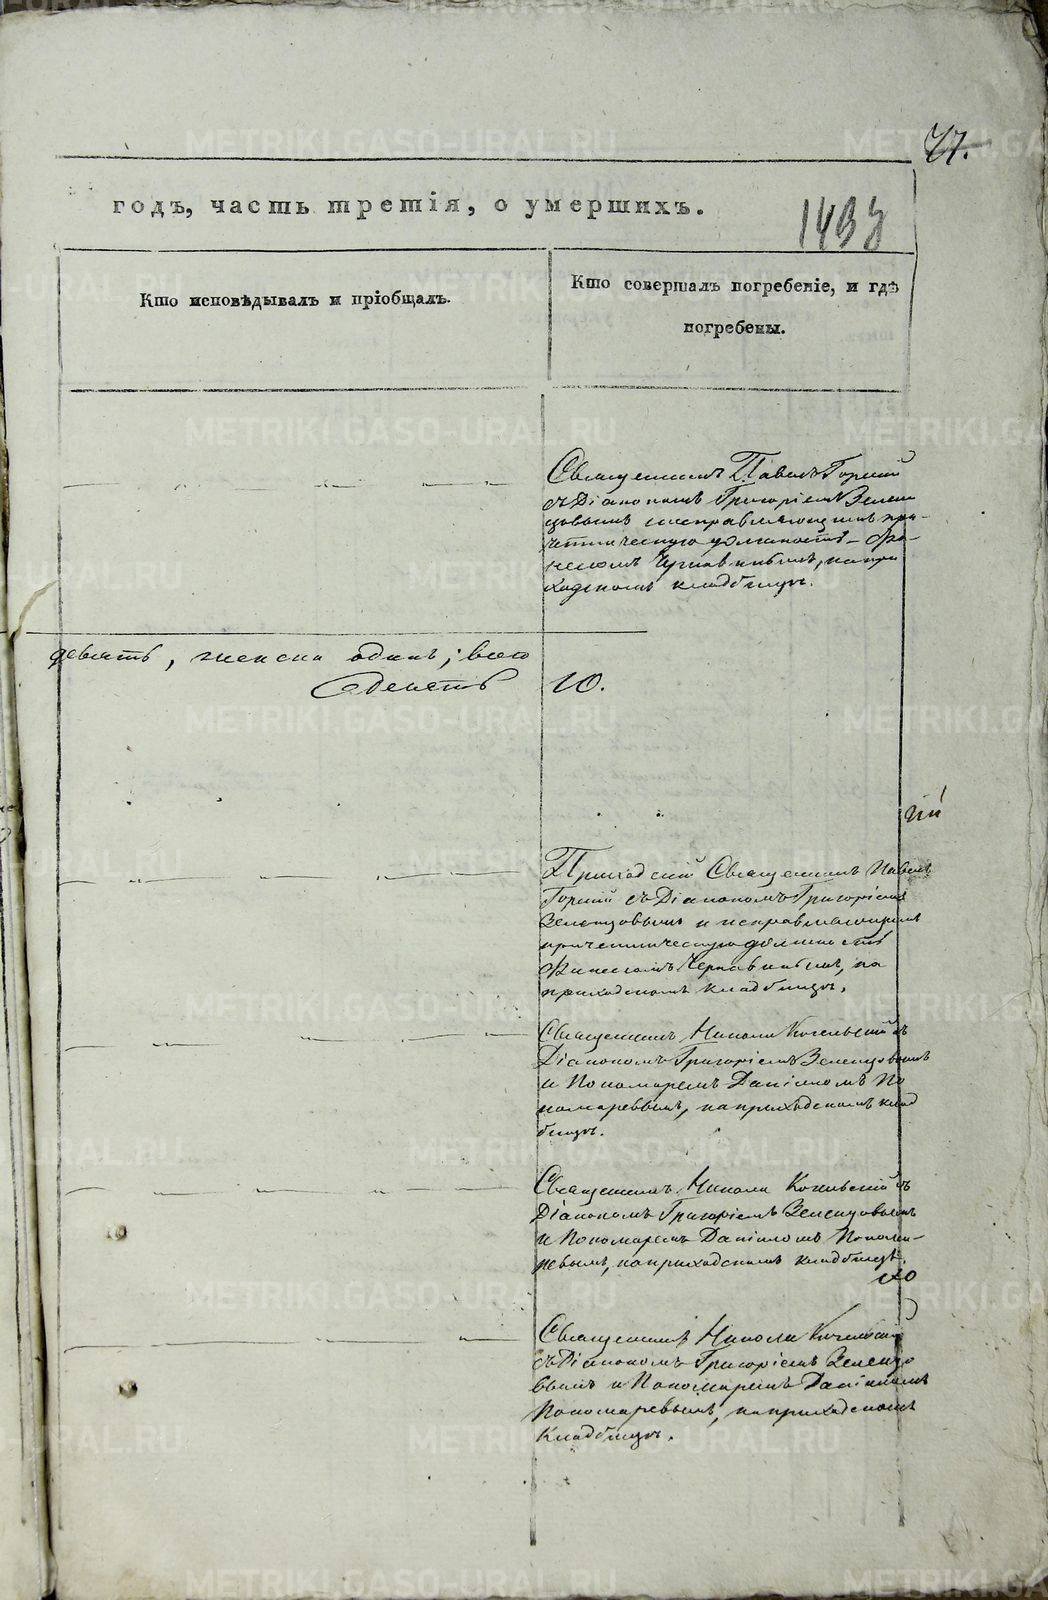 77.
годъ, часть третія, о умершихъ.
1433
Кто исповѣдывалъ и пріобщалъ.
Кто совершалъ погребеніе, и гдѣ
погребены.
Священникъ Павелъ Горный
съ Діакономъ Григоріемъ Зелен
цовымъ исправляющимъ при-
четническую должность
на при
ходскомъ кладбищѣ.
девять, женска одинъ; всего
десять 10.
Приходскій Священникъ Павелъ
Горный съ Діакономъ Григоріемъ
Зеленцовымъ и исправляющимъ
причетническую должность
на
приходскомъ кладбищѣ.
Священникъ Николай съ
Діакономъ Григоріемъ Зеленцовымъ
и Пономаремъ Даніиломъ По
номаревымъ, на приходскомъ клад
бищѣ.
Священникъ Николай съ
Діакономъ Григоріемъ Зеленцовымъ
и Пономаремъ Даніиломъ Понома-
ревымъ, на приходскомъ кладбищѣ.
Священникъ Николай
съ Діакономъ Григоріемъ Зеленцо
вымъ и Пономаремъ Даніиломъ
Пономаревымъ, на приходскомъ
кладбищѣ.
METRIKI.GASO-URAL.RU